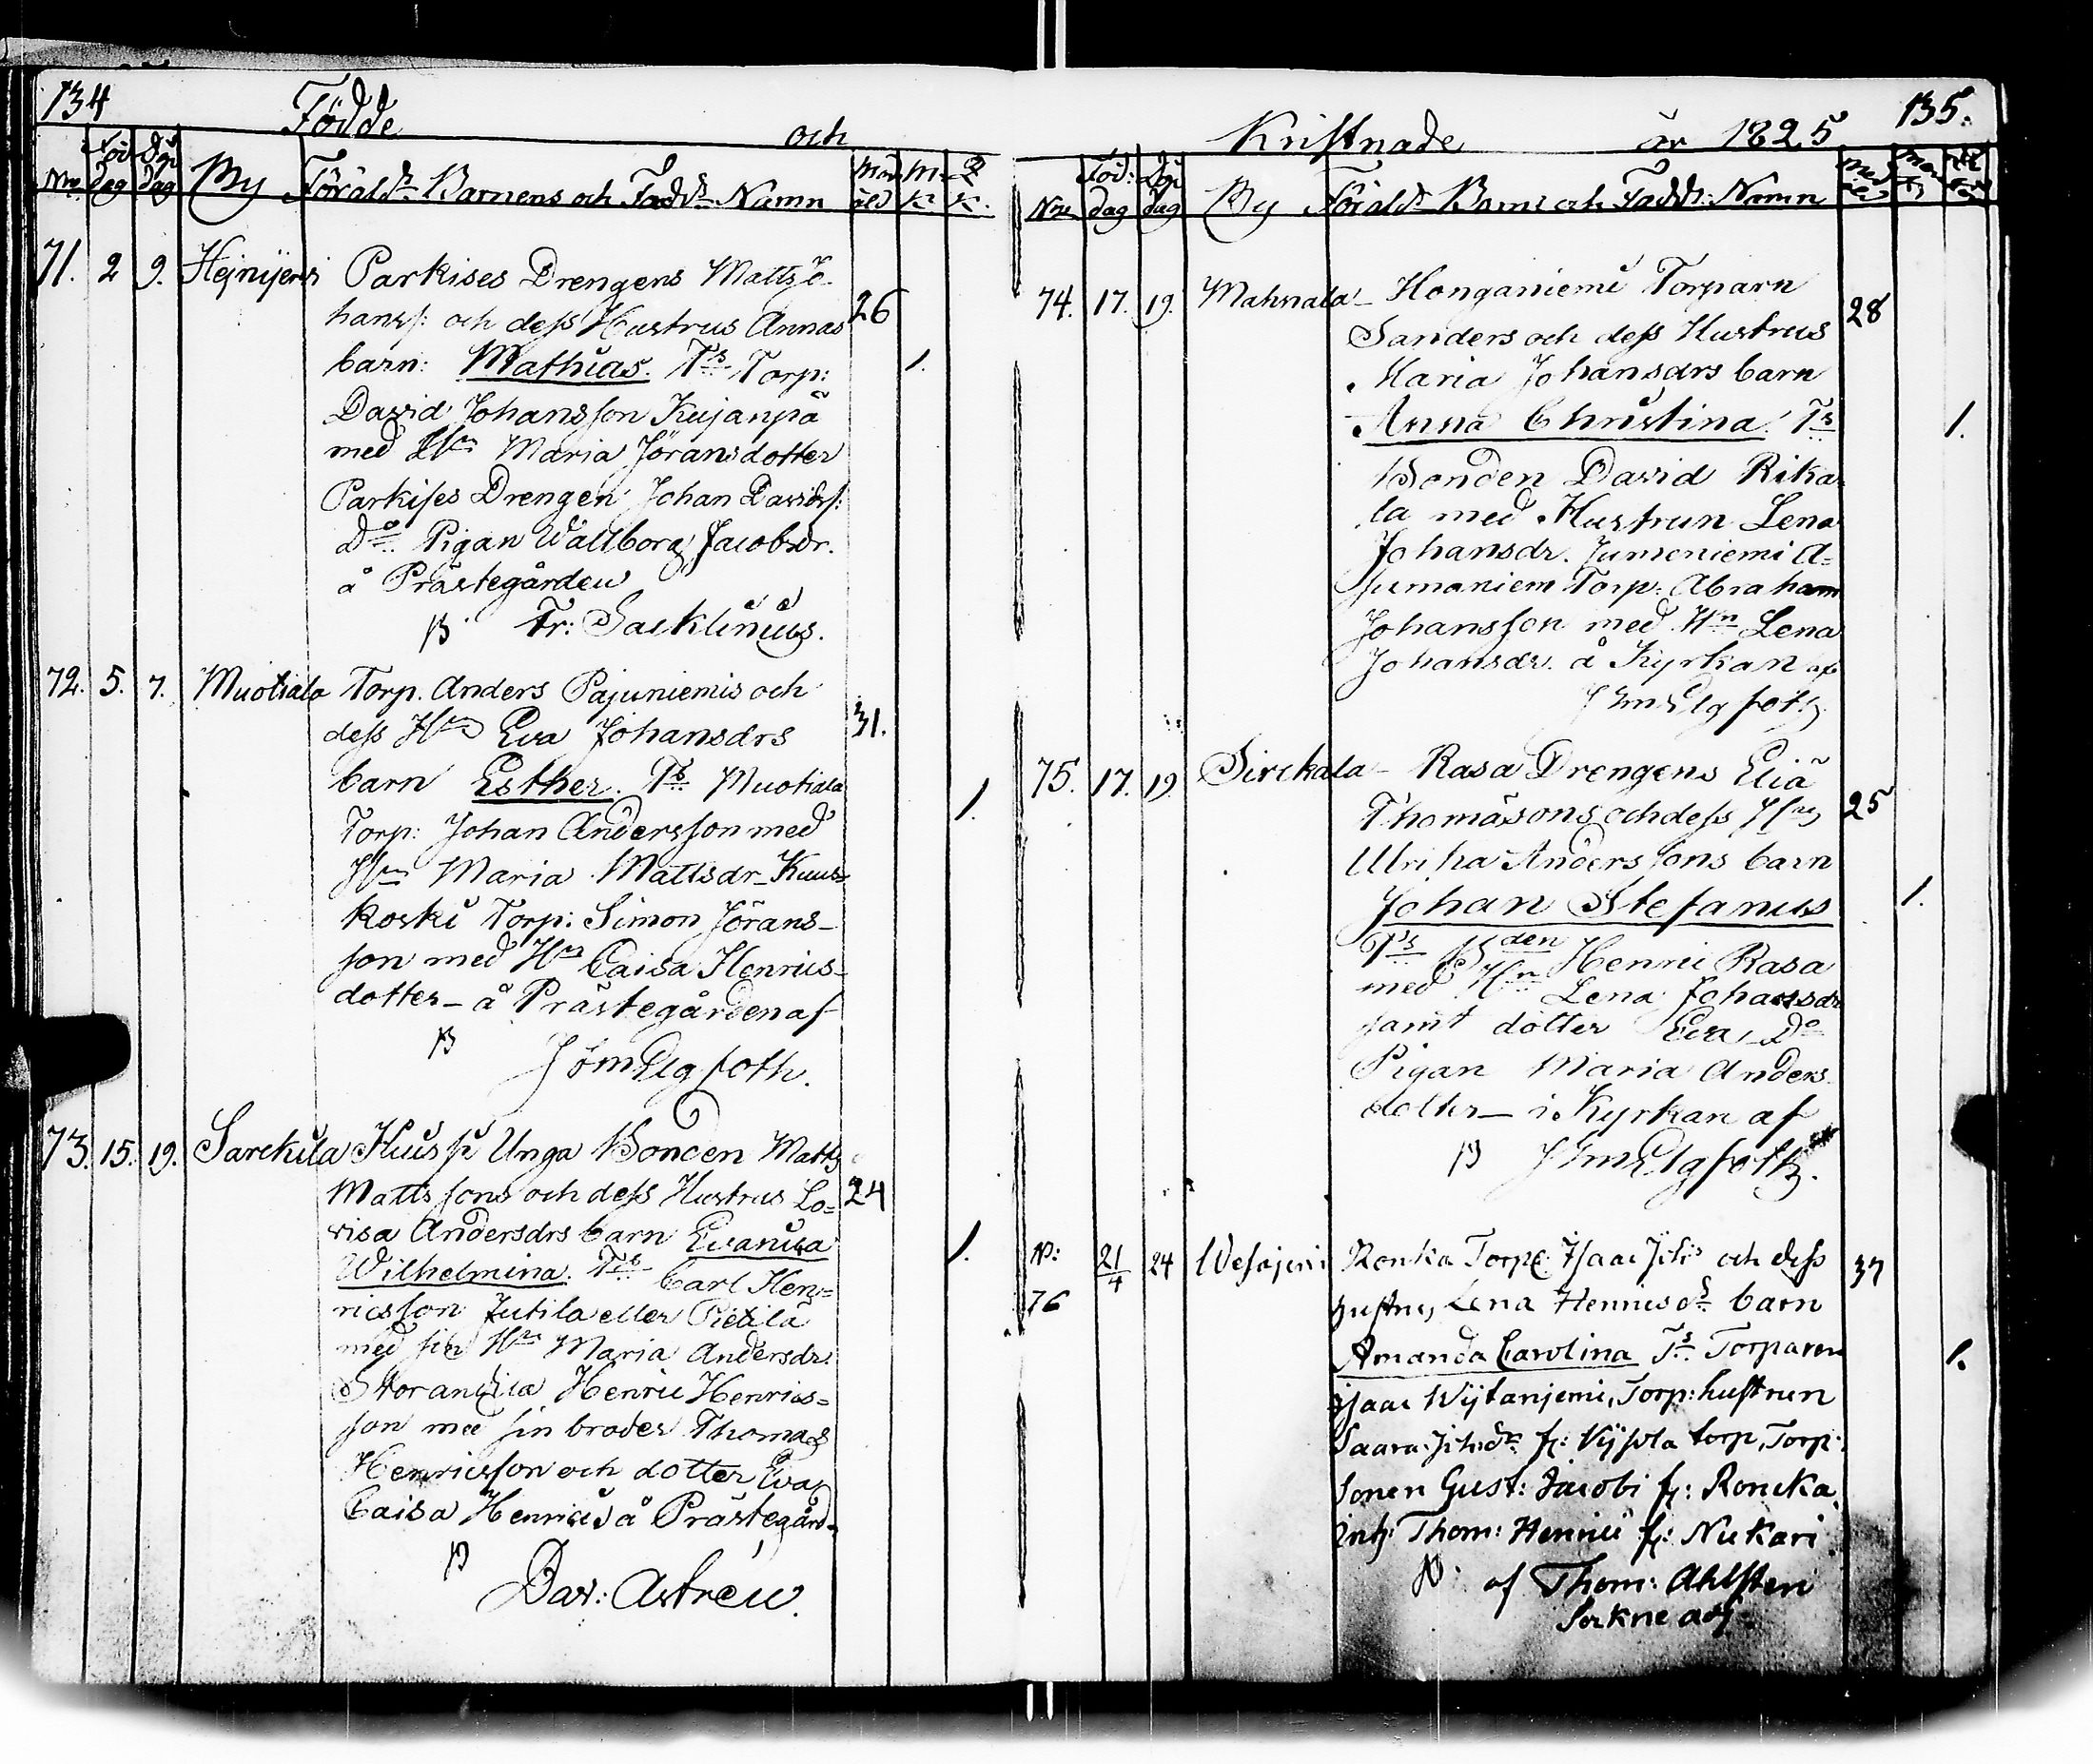 134
Födde
och
Nro Föd dag Döp dag By Föräld:rs Barnens och Fadd:rs Namn Mod: åld M. K. Q. K.
71. 2 9. Hejnijerwi Parkises Drengens Matts Jo-
hanss: och dess Hustrus Annas 26
barn: Mathias. Ts Torp: 1.
David Johansson Kujanpä
med Hn Maria Jöransdotter
Parkises Drengen Johan Davids:
Do Pigan Wallborg Jacobsdr.
å Prästegården
Fr: Sacklinius.
72. 5. 7. Muotiala Torp. Anders Pajuniemis och
dess Hus Eva Johansdrs 31.
barn Esther. Ts Muotiala 1.
Torp: Johan Andersson med
Hn Maria Mattsdr Kuus=
koski Torp: Simon Jörans-
son med Hn Caisa Henrics-
dotter - å Prästegården af
Elgfoth.
73. 15. 19. Sarckula Huus Unga Bonden Matts
Mattssons och dess Hustrus Lo= 24
visa Andersdrs barn 1.
Wilhelmina. Ts Carl Hen=
ricsson Jutila eller Pietilä
med sin Hn Maria Andersdr
Henric Henrics=
son med sin broder Thomas
Henricsson och dotter Eva
Caisa å Prästegård-
Dav: Astrén.
135.
Kristnade år 1825
Nro Föd: dag Döp dag By Föräld:rs Barns och Fadd:rs Namn
74. 17. 19. Mahnala - Honganiemi Torparn 28
Sanders och dess Hustrus
Maria Johansdrs barn
Anna Christina. Ts 1.
Bonden David Rika-
la med Hustrun Lena
Johansdr. Jumeniemi A-
Jumaniem Torp: Abraham
Johansson med Hn Lena
Johansdr. å Kyrkan af
Elgfoth.
75. 17. 19. Sirckala - Rasa Drengens Eliä
Thomäsons och dess Hus 25
Ulrika Anderssons barn
Johan Stefanus 1.
Ts Bden Henric Rasa
med Hn Lena Johansdr
samt dotter Eva, Do
Pigan Maria Anders
dotter - i Kyrkan af
Elgfoth.
N: 76 21/4 24 Wesajerwi Ronka Torp: Isaac Johs och dess 37
hustrus Lena Henricsdr barn
Amanda Carolina Ts Torparen 1.
Isaac Wijtanjemi, Torp: hustrun
Saara Johsdr fr: torp, Torp:
sonen Gust: Jacobi fr: Roncka,
Inh: Thom: Henrici fr: Nukari
af Thom: Ahlsten
Sockne adj.